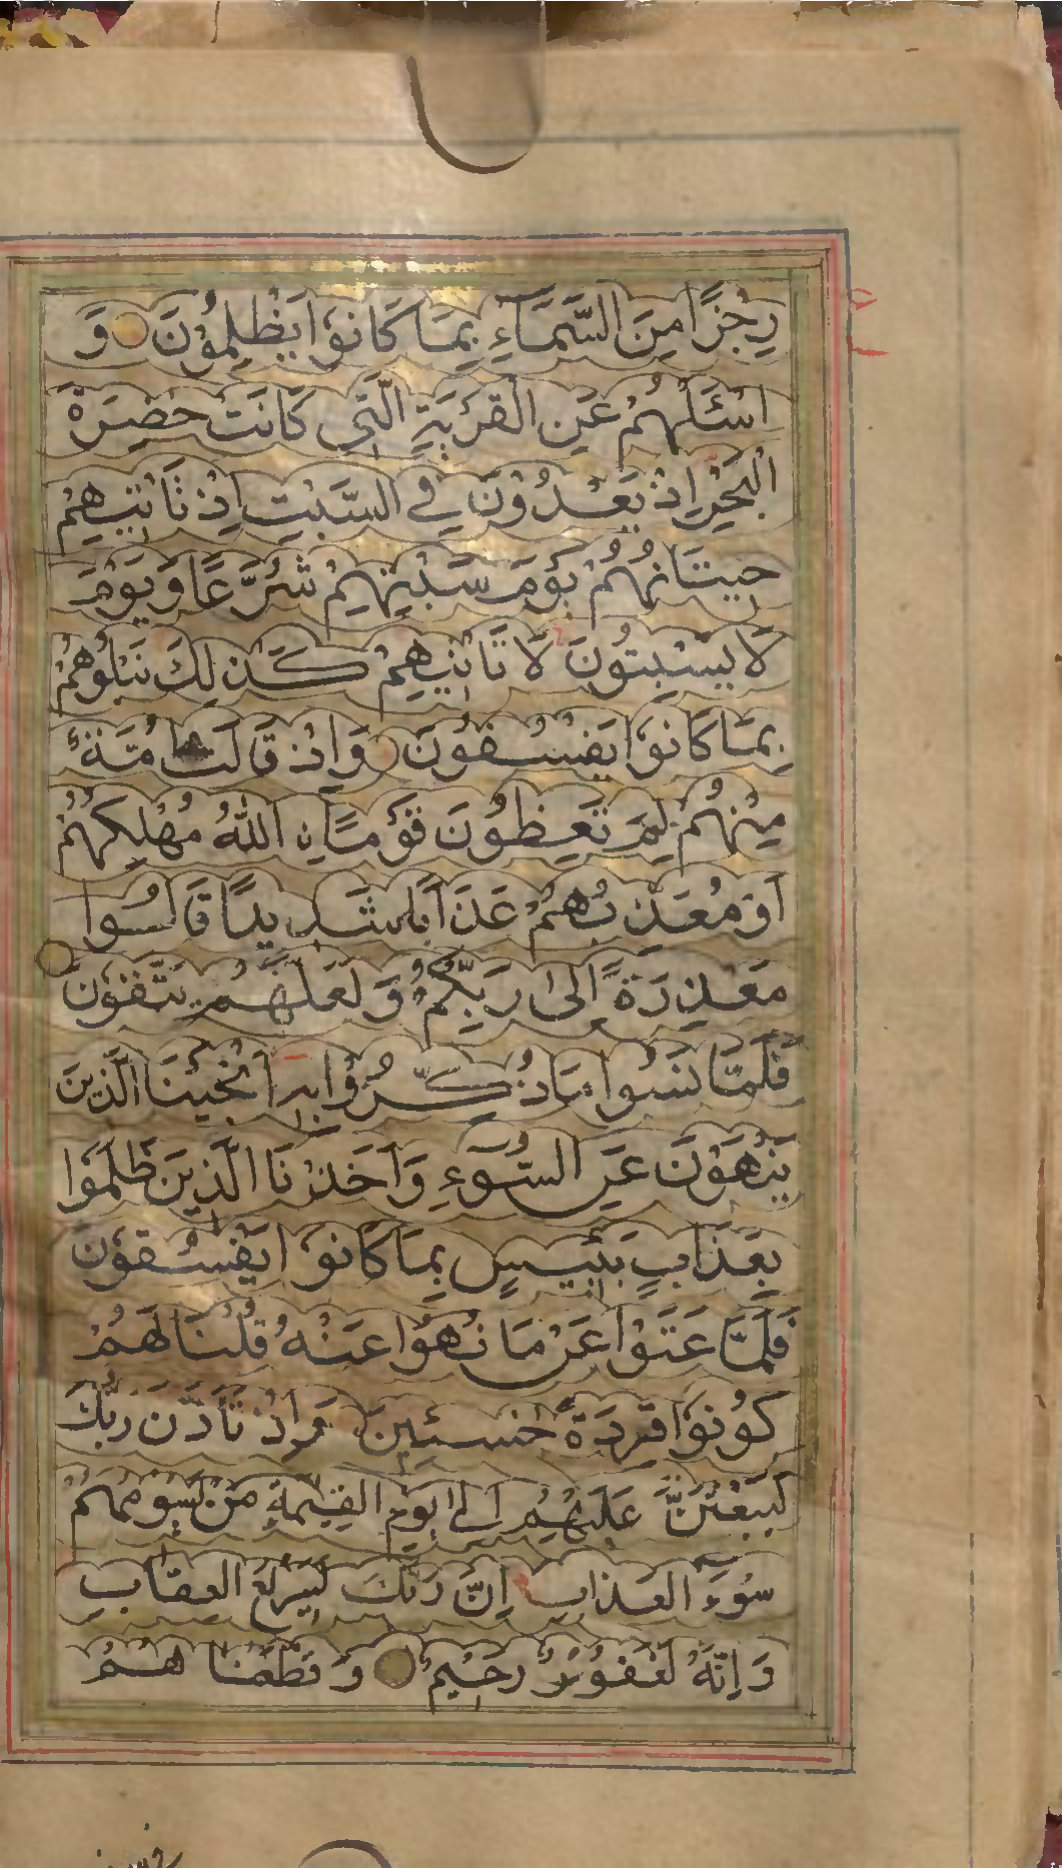 رِجْزًا مِنَ السَّمَاءِ بِمَا كَانُوا يَظْلِمُونَ وَ
اسْئَلْهُمْ عَنِ الْقَرْيَةِ الَّتِي كَانَتْ حَضِرَةَ
الْبَحْرِ اِذْ يَعْدُوْنَ فِي السَّبْتِ اِذْ تَاْتِيْهِمْ
حِيتَانُهُمْ يَوْمَ سَبْتِهِمْ شُرَّعًا وَيَوْمَ
لَا يَسْبِتُونَ لَا تَاْتِيْهِمْ كَذٰلِكَ نَبْلُوهُمْ
بِمَا كَانُوا يَفْسُقُونَ وَاِذْ قَالَتْ اُمَّةٌ
مِنْهُمْ لِمَ تَعِظُوْنَ قَوْمًا اللّٰهُ مُهْلِكُهُمْ
اَوْ مُعَذِّبُهُمْ عَذَابًا شَدِيدًا قَالُوا
مَعْذِرَةً اِلٰى رَبِّكُمْ وَلَعَلَّهُمْ يَتَّقُوْنَ
فَلَمَّا نَسُوا مَا ذُكِّرُوْا بِهٖ اَنْجَيْنَا الَّذِيْنَ
يَنْهَوْنَ عَنِ السُّوْٓءِ وَاَخَذْنَا الَّذِيْنَ ظَلَمُوْا
بِعَذَابٍ بَئِيْسٍ بِمَا كَانُوا يَفْسُقُوْنَ
فَلَمَّا عَتَوْا عَنْ مَا نُهُوْا عَنْهُ قُلْنَا لَهُمْ
كُوْنُوْا قِرَدَةً خٰسِئِيْنَ وَاِذْ تَاَذَّنَ رَبُّكَ
لَيَبْعَثَنَّ عَلَيْهِمْ اِلٰى يَوْمِ الْقِيٰمَةِ مَنْ يَسُوْمُهُمْ
سُوْٓءَ الْعَذَابِ اِنَّ رَبَّكَ لَسَرِيْعُ الْعِقَابِ
وَاِنَّهُ لَغَفُوْرٌ رَحِيْمٌ وَقَطَّعْنَا هُمْ